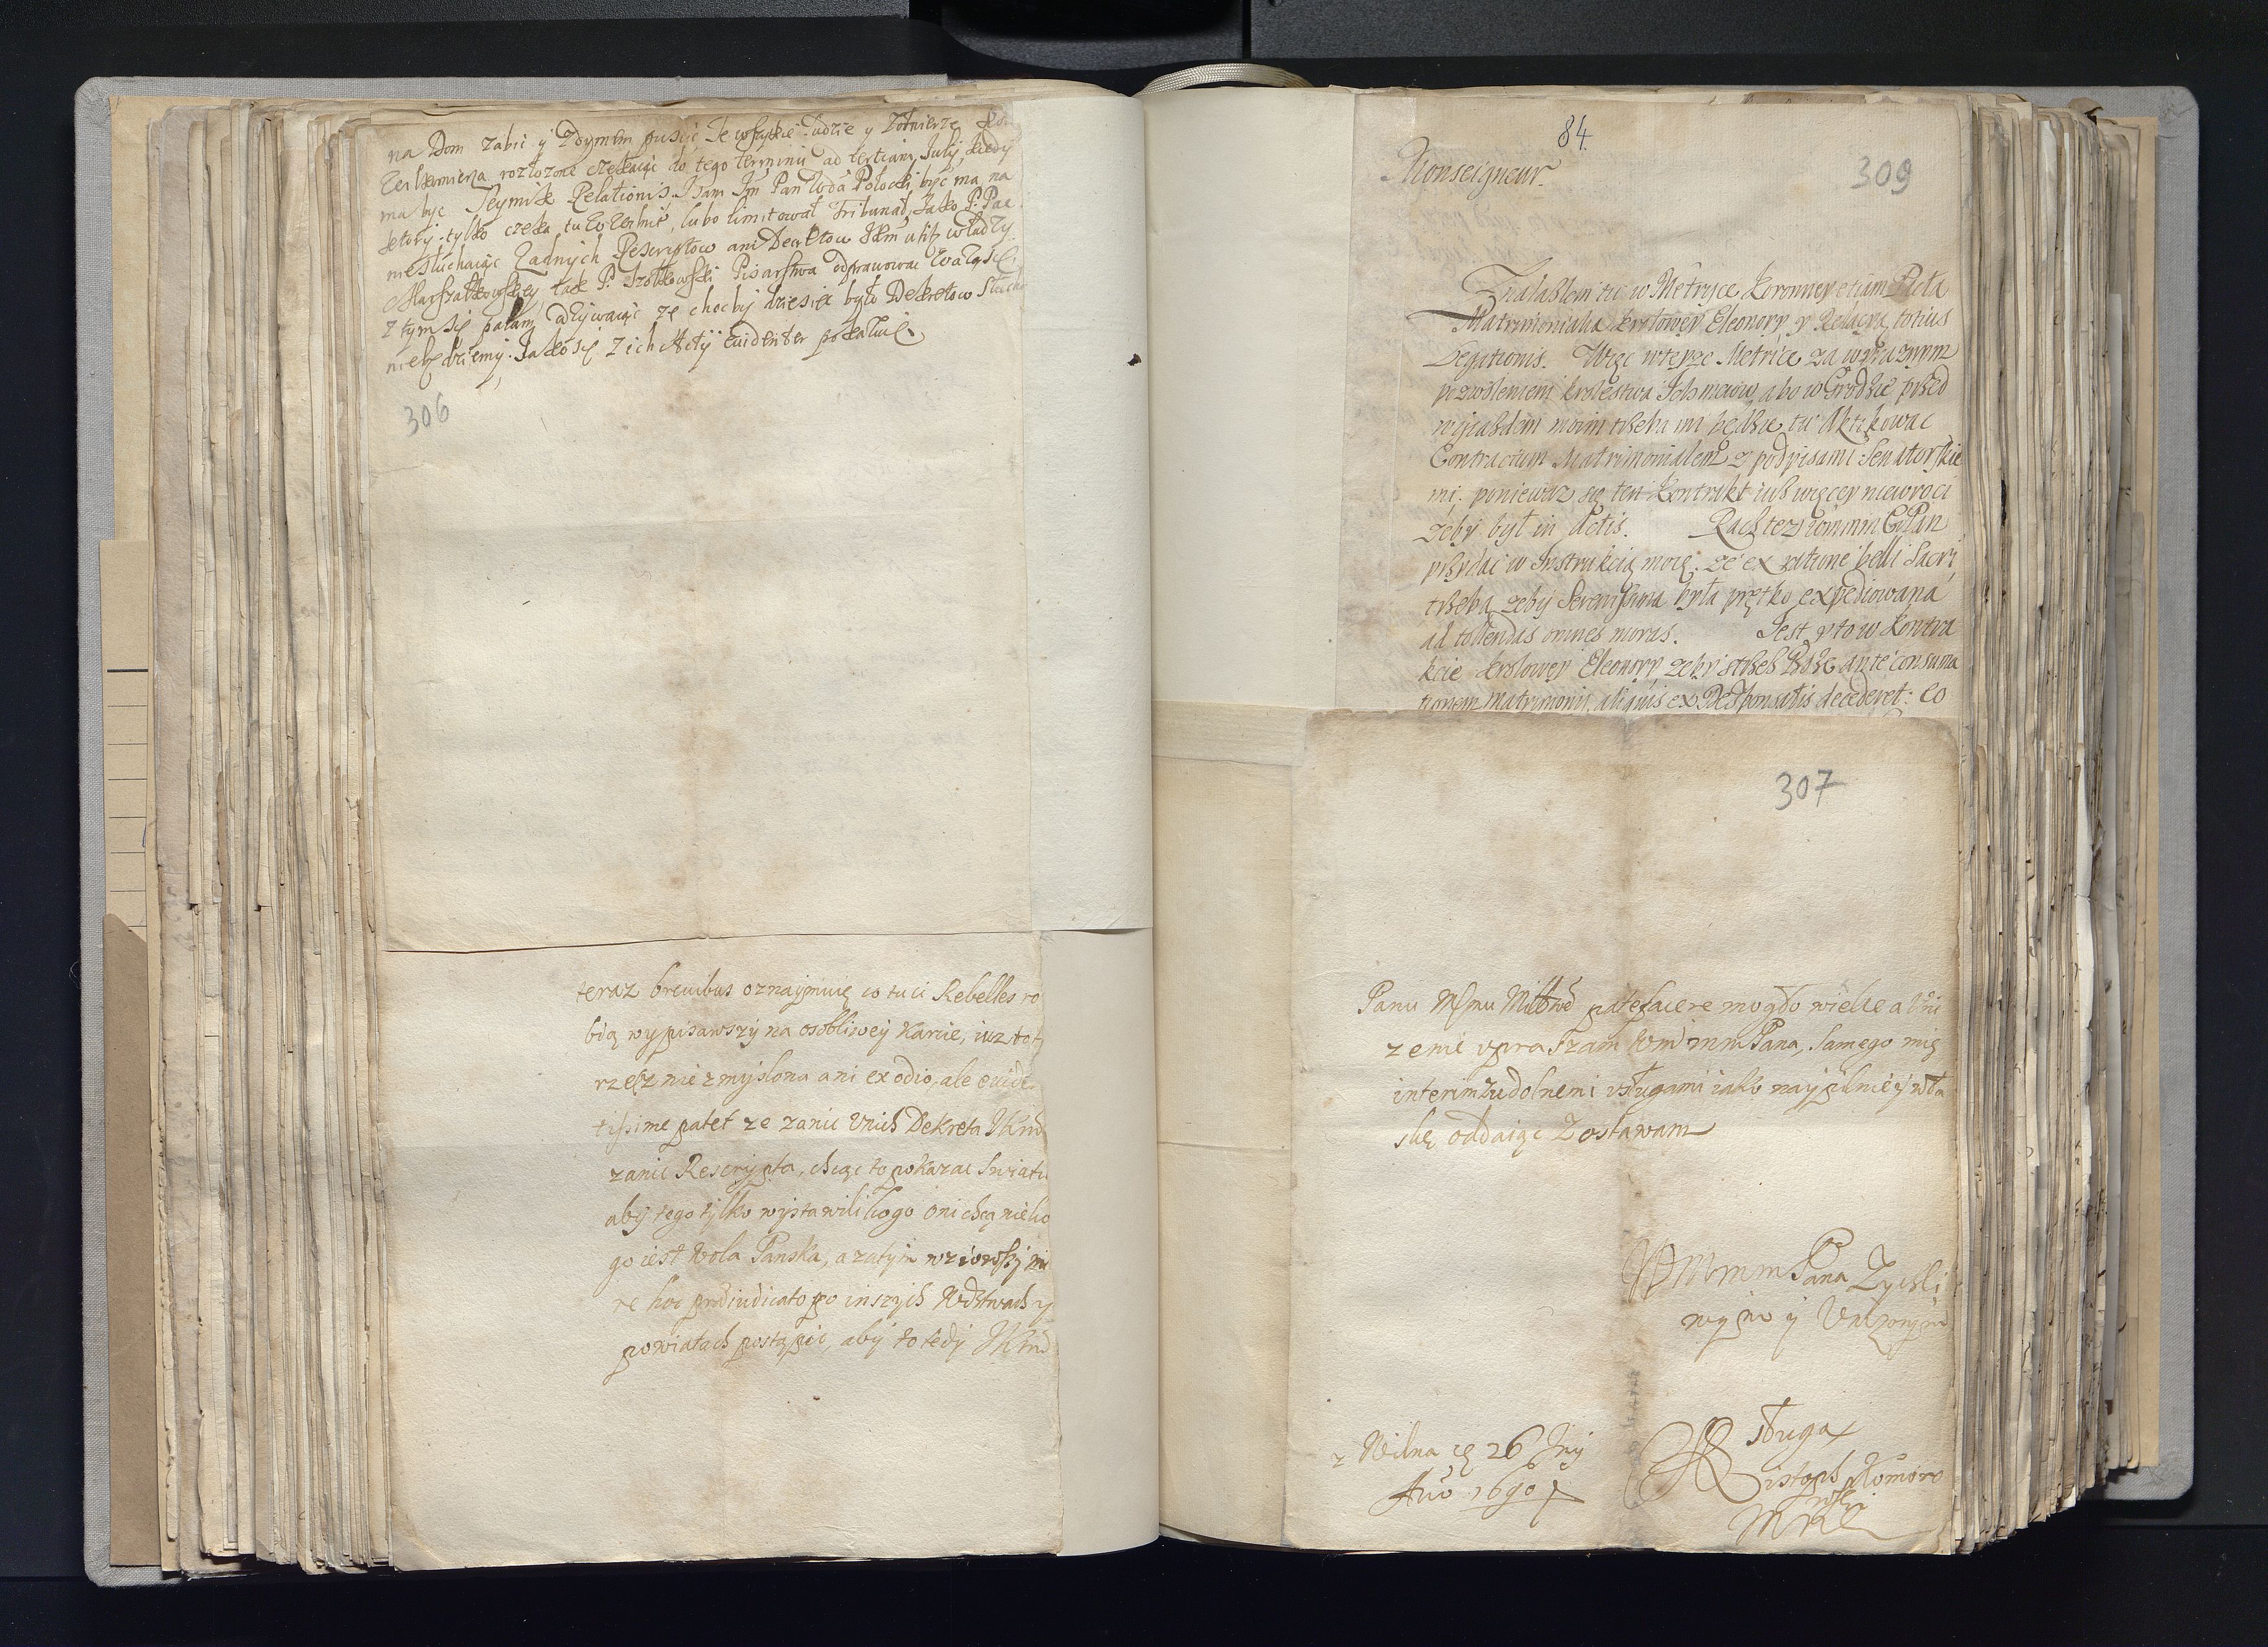 na Dom zabić y z dymem puscić Te wszytkie Ludzie y Zołnierze
rozłozone czekaiąc do tego terminu ad tertiam Julij, kiedy
ma byc Seymik Relationis. Sam Jm Pan Wda Połocki być ma na
ktory tylko czeka tu w Wilnie, lubo limitował Tribunał, Jako P. Pac
niesłuchaiąc Zadnych Rescriptow ani Decretow JKm
Marszałkowskiey, tak P. Pisarstwa odprawowac
z tym się palam ze choc by dziesięc było Dekretow
niebędziemy. Jako się z ich Acty euidenter pokazuie
306
teraz breuibus oznaymuię co tu ci Rebelles ro
bią wypisawszy na osobliwey Karcie, iuz to
rzecz nie zmyslona ani ex odio, ale euide
tissime patet ze zanic v nich Dekreta JKmci
zanic Rescripta, chcąc to pokazac swiatu
aby tego tylko wystawili kogo oni chcą nie ko
go iest wola Panska, a zatym wziowszy
re hoc prdiudicato po inszych Wdztwach y
powiatach postąpic, aby to tedy JKmci
84.
309
Monseigneur.
Znalazłem tu w Metryce Koronney etiam Pacta
Matrimonialia Krolowey Eleonory y Relacyą totius
Legationis. Więc w teyze Metrice za wyraznym
pozwoleniem Krolestwa Ichmciow abo w Grodzie przed
wyiazdem moim trzeba mi będzie tu Aktikowac
Contractum Matrimonialem z podpisami Senatorskie
mi. poniewaz się ten Kontrakt iuz więcey niewroci
zeby był in Actis. Racz tez
przydać w Instrukcią moię. ze ex ratione belli Sacri
trzeba zeby Serenissima była prętko expediowana
ad tollendas omnes moras. Jest y to w Kontra
kcie Krolowey Eleonory zeby strzez Boze ante consuma
tionem Matrimonij aliquis ex Desponsatis decederet: co
307
Panu Memu Miłłmu patefacere mogło wielce a
zenie vpraszam Wm mm Pana, Samego mię
interim zudolnemi vsługami iako naypilniey w ła
skę oddaiąc Zostawam
WM mm Pana Zyczli
wym y Vnizonym
sługa
z Wilna 26
Ano 1690
Komoro
wski